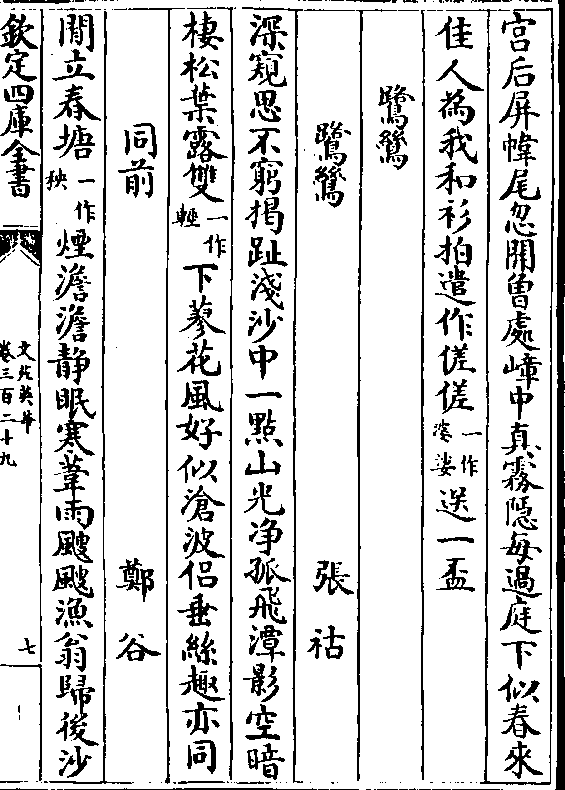 宫后屏幃尾忽開曽處嶂中真霧隱每過庭下似春來
佳人為我和衫拍遣作傞傞一作婆娑送一盃
鷺鷥
鷺鷥 張祜
深窺思不窮揭趾淺沙中一點山光净孤飛潭影空暗
棲松葉露雙一作輕下蓼花風好似滄波侣垂絲趣亦同
同前 鄭谷
閒立春塘一作秧煙澹澹静眠寒葦雨颼颼漁翁歸後沙
欽定四庫全書
文苑英華
卷三百二十九
七